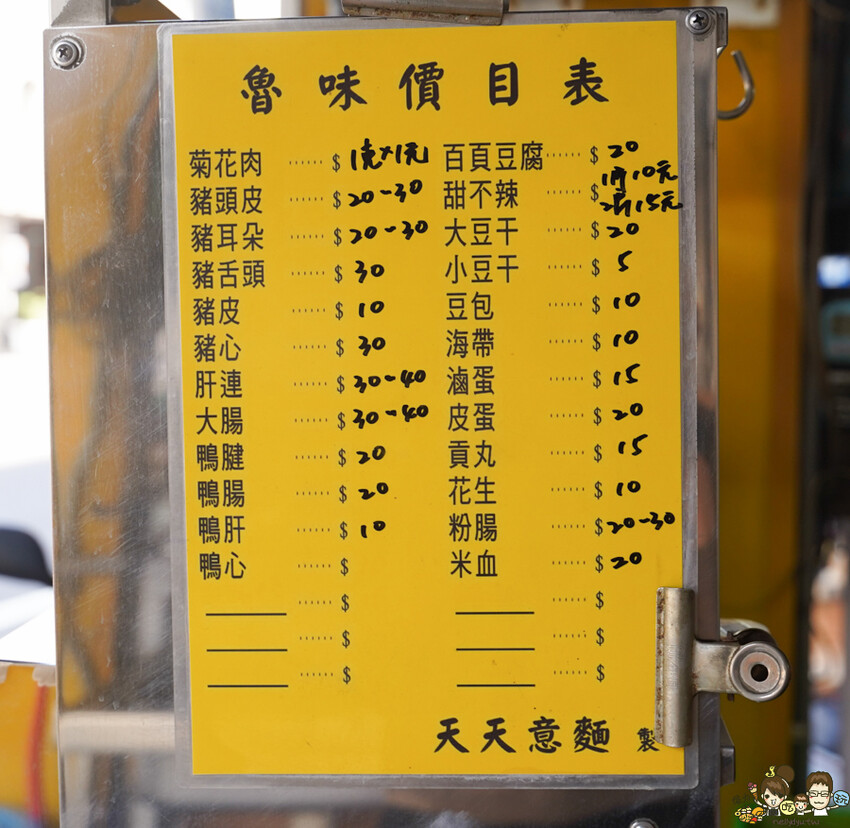 魯味價目表
菊花肉 ...... $ 1克×1元
豬頭皮 ...... $ 20-30
豬耳朵 ...... $ 20-30
豬舌頭 ...... $ 30
豬皮 ...... $ 10
豬心 ...... $ 30
肝連 ...... $ 30-40
大腸 ...... $ 30-40
鴨腱 ...... $ 20
鴨腸 ...... $ 20
鴨肝 ...... $ 10
鴨心 ...... $
...... $
...... $
...... $
百頁豆腐 ...... $ 20
甜不辣 ...... $ 1片10元
2片15元
大豆干 ...... $ 20
小豆干 ...... $ 5
豆包 ...... $ 10
海帶 ...... $ 10
滷蛋 ...... $ 15
皮蛋 ...... $ 20
貢丸 ...... $ 15
花生 ...... $ 10
粉腸 ...... $ 20-30
米血 ...... $ 20
...... $
...... $
...... $
天天意麵 製
吃 玩